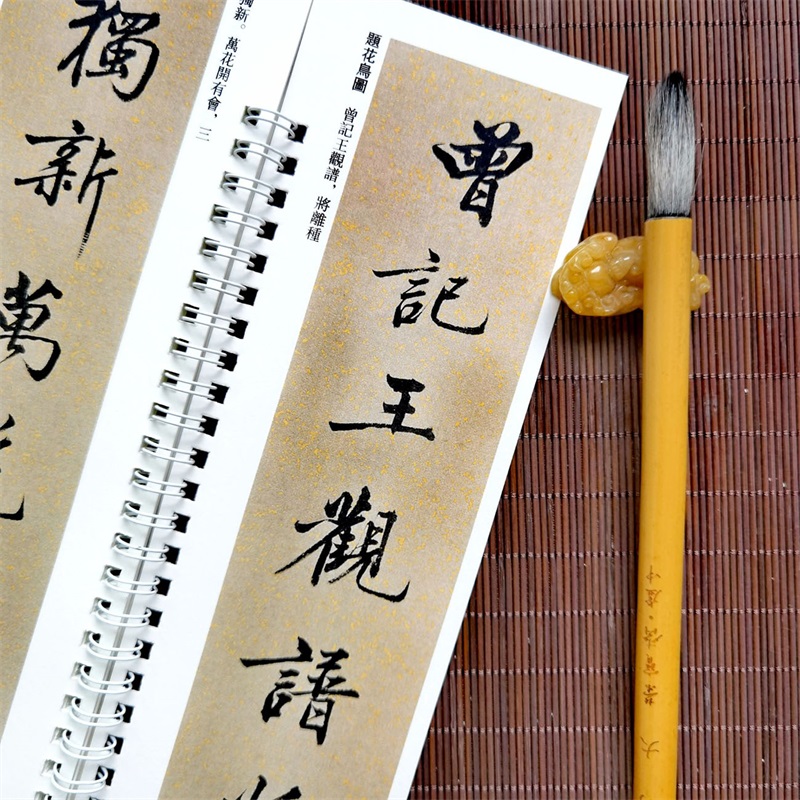 題花鳥圖 曾記王觀譜，將離種
曾記王觀譜
獨新。萬花開有會，三
獨新萬